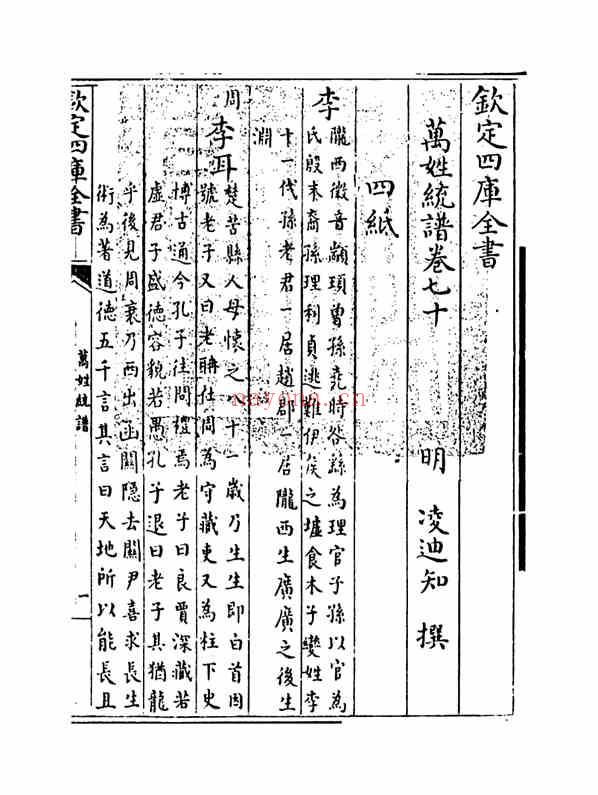 欽定四庫全書
萬姓統譜卷七十
明 凌迪知 撰
四紙
李
隴西徵音顓頊曾孫堯時咎繇為理官子孫以官為
氏殷末裔孫理利貞逃難伊侯之墟食木子變姓李
十一代孫老君一居趙郡一居隴西生廣廣之後生
淵
周
李耳
楚苦縣人母懷之八十一歲乃生生即白首因
號老子又曰老聃仕周為守藏吏又為柱下史
博古通今孔子往問禮焉老子曰良賈深藏若
虛君子盛德容貌若愚孔子退曰老子其猶龍
乎後見周衰乃西出函關隱去關尹喜求長生
術為著道德五千言其言曰天地所以能長且
欽定四庫全書
萬姓統譜
一
nayona.cn